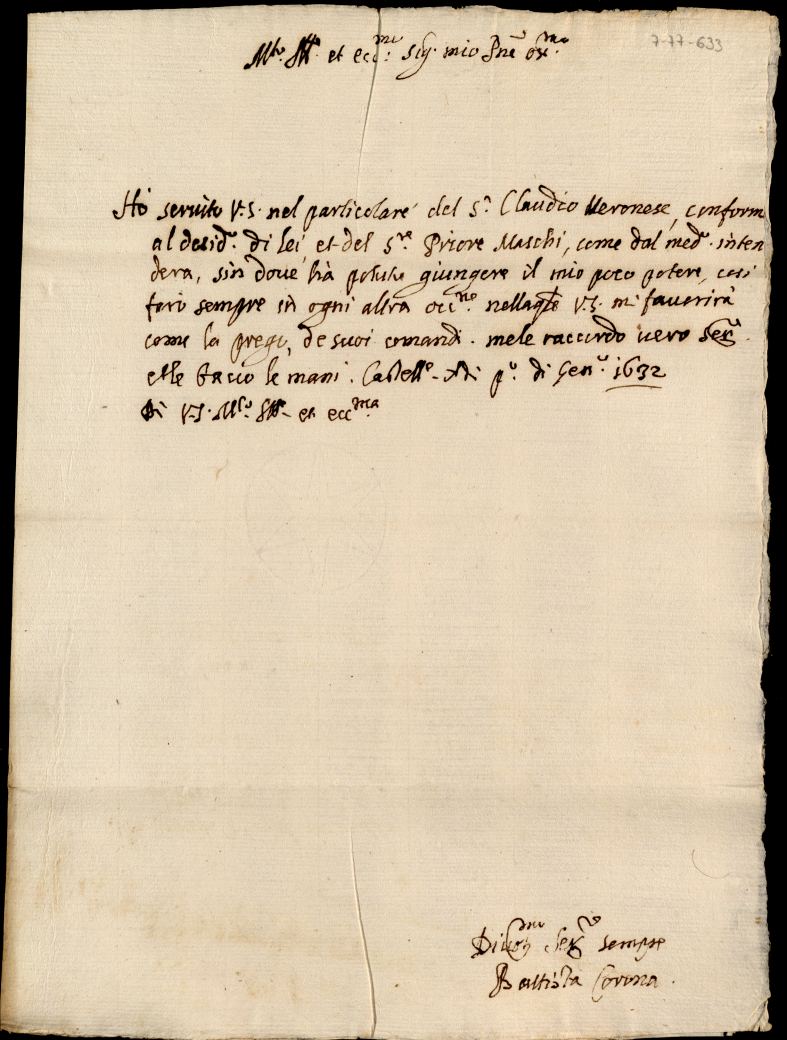 7-77-633
Mto. Illre. et ecc:mo Sig. mio Prne oss.mo
Hò seruito V.S. nel particolare del S.r Claudio Ueronese, conform
al desid.o di lei, et del S.re Priore Maschi, come dal med.o inten
derà, sin doue hà potuto giungere il mio poco potere, cosi
farò sempre in ogni altra occ.ne nella qle V.S. mi fauorirà
come la prego, de suoi comandi. mele raccordo uero Ser.e
et le bacio le mani. Castell.o Adi p.o di Gen.o 1632
Di V.S. Mto. Illre. et ecc.ma
Ser.e sempre
Battista Corona.